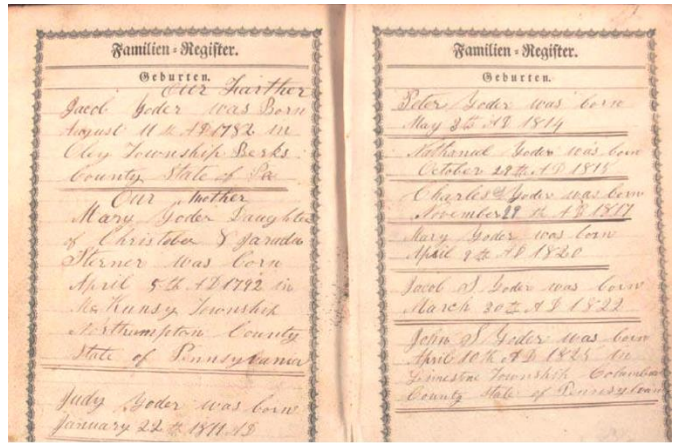 Familien=Register.
Geburten.
Our Farther
Jacob Yoder was Born
August 11th AD 1782 in
Oley Township Berks
County State of Pa
Our Mother
Mary Yoder Daughter
of Christober &
Sterner was born
April 5th AD 1792 in
Township
Northumpton County
State of Pennsylvania
Judy Yoder was born
January 22th 1811 AD
Familien=Register.
Geburten.
Peter Yoder was born
May 3th AD 1814
Nathaniel Yoder was born
October 29th AD 1815
Charles Yoder was born
November 29th AD 1817
Mary Yoder was born
April 9th AD 1820
Jacob S Yoder was born
March 30th AD 1822
John S Yoder was born
April 10th AD 1825 in
Limestone Township Columbia
County State of Pennsylvania